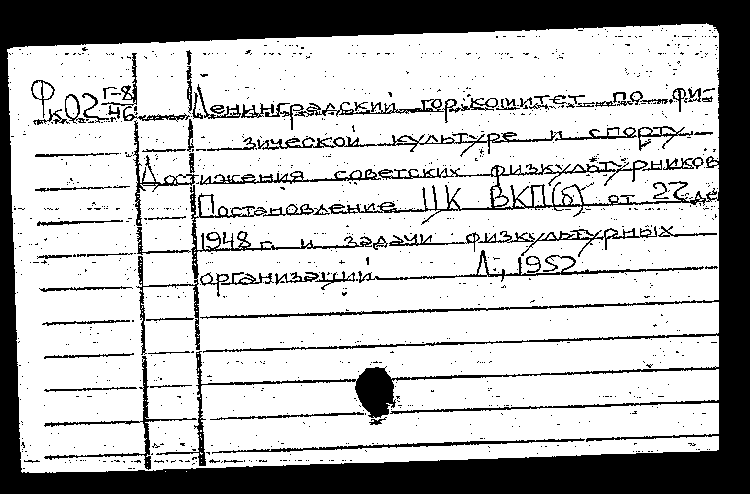 Фк02 Г-8/46 Ленинградский гор.комитет по фи-
зической культуре и спорту.
Достижения советских физкультурников
Постановление ЦК ВКП(б) от 27 де
1948 г. и задачи физкультурных
организаций. Л., 1952.